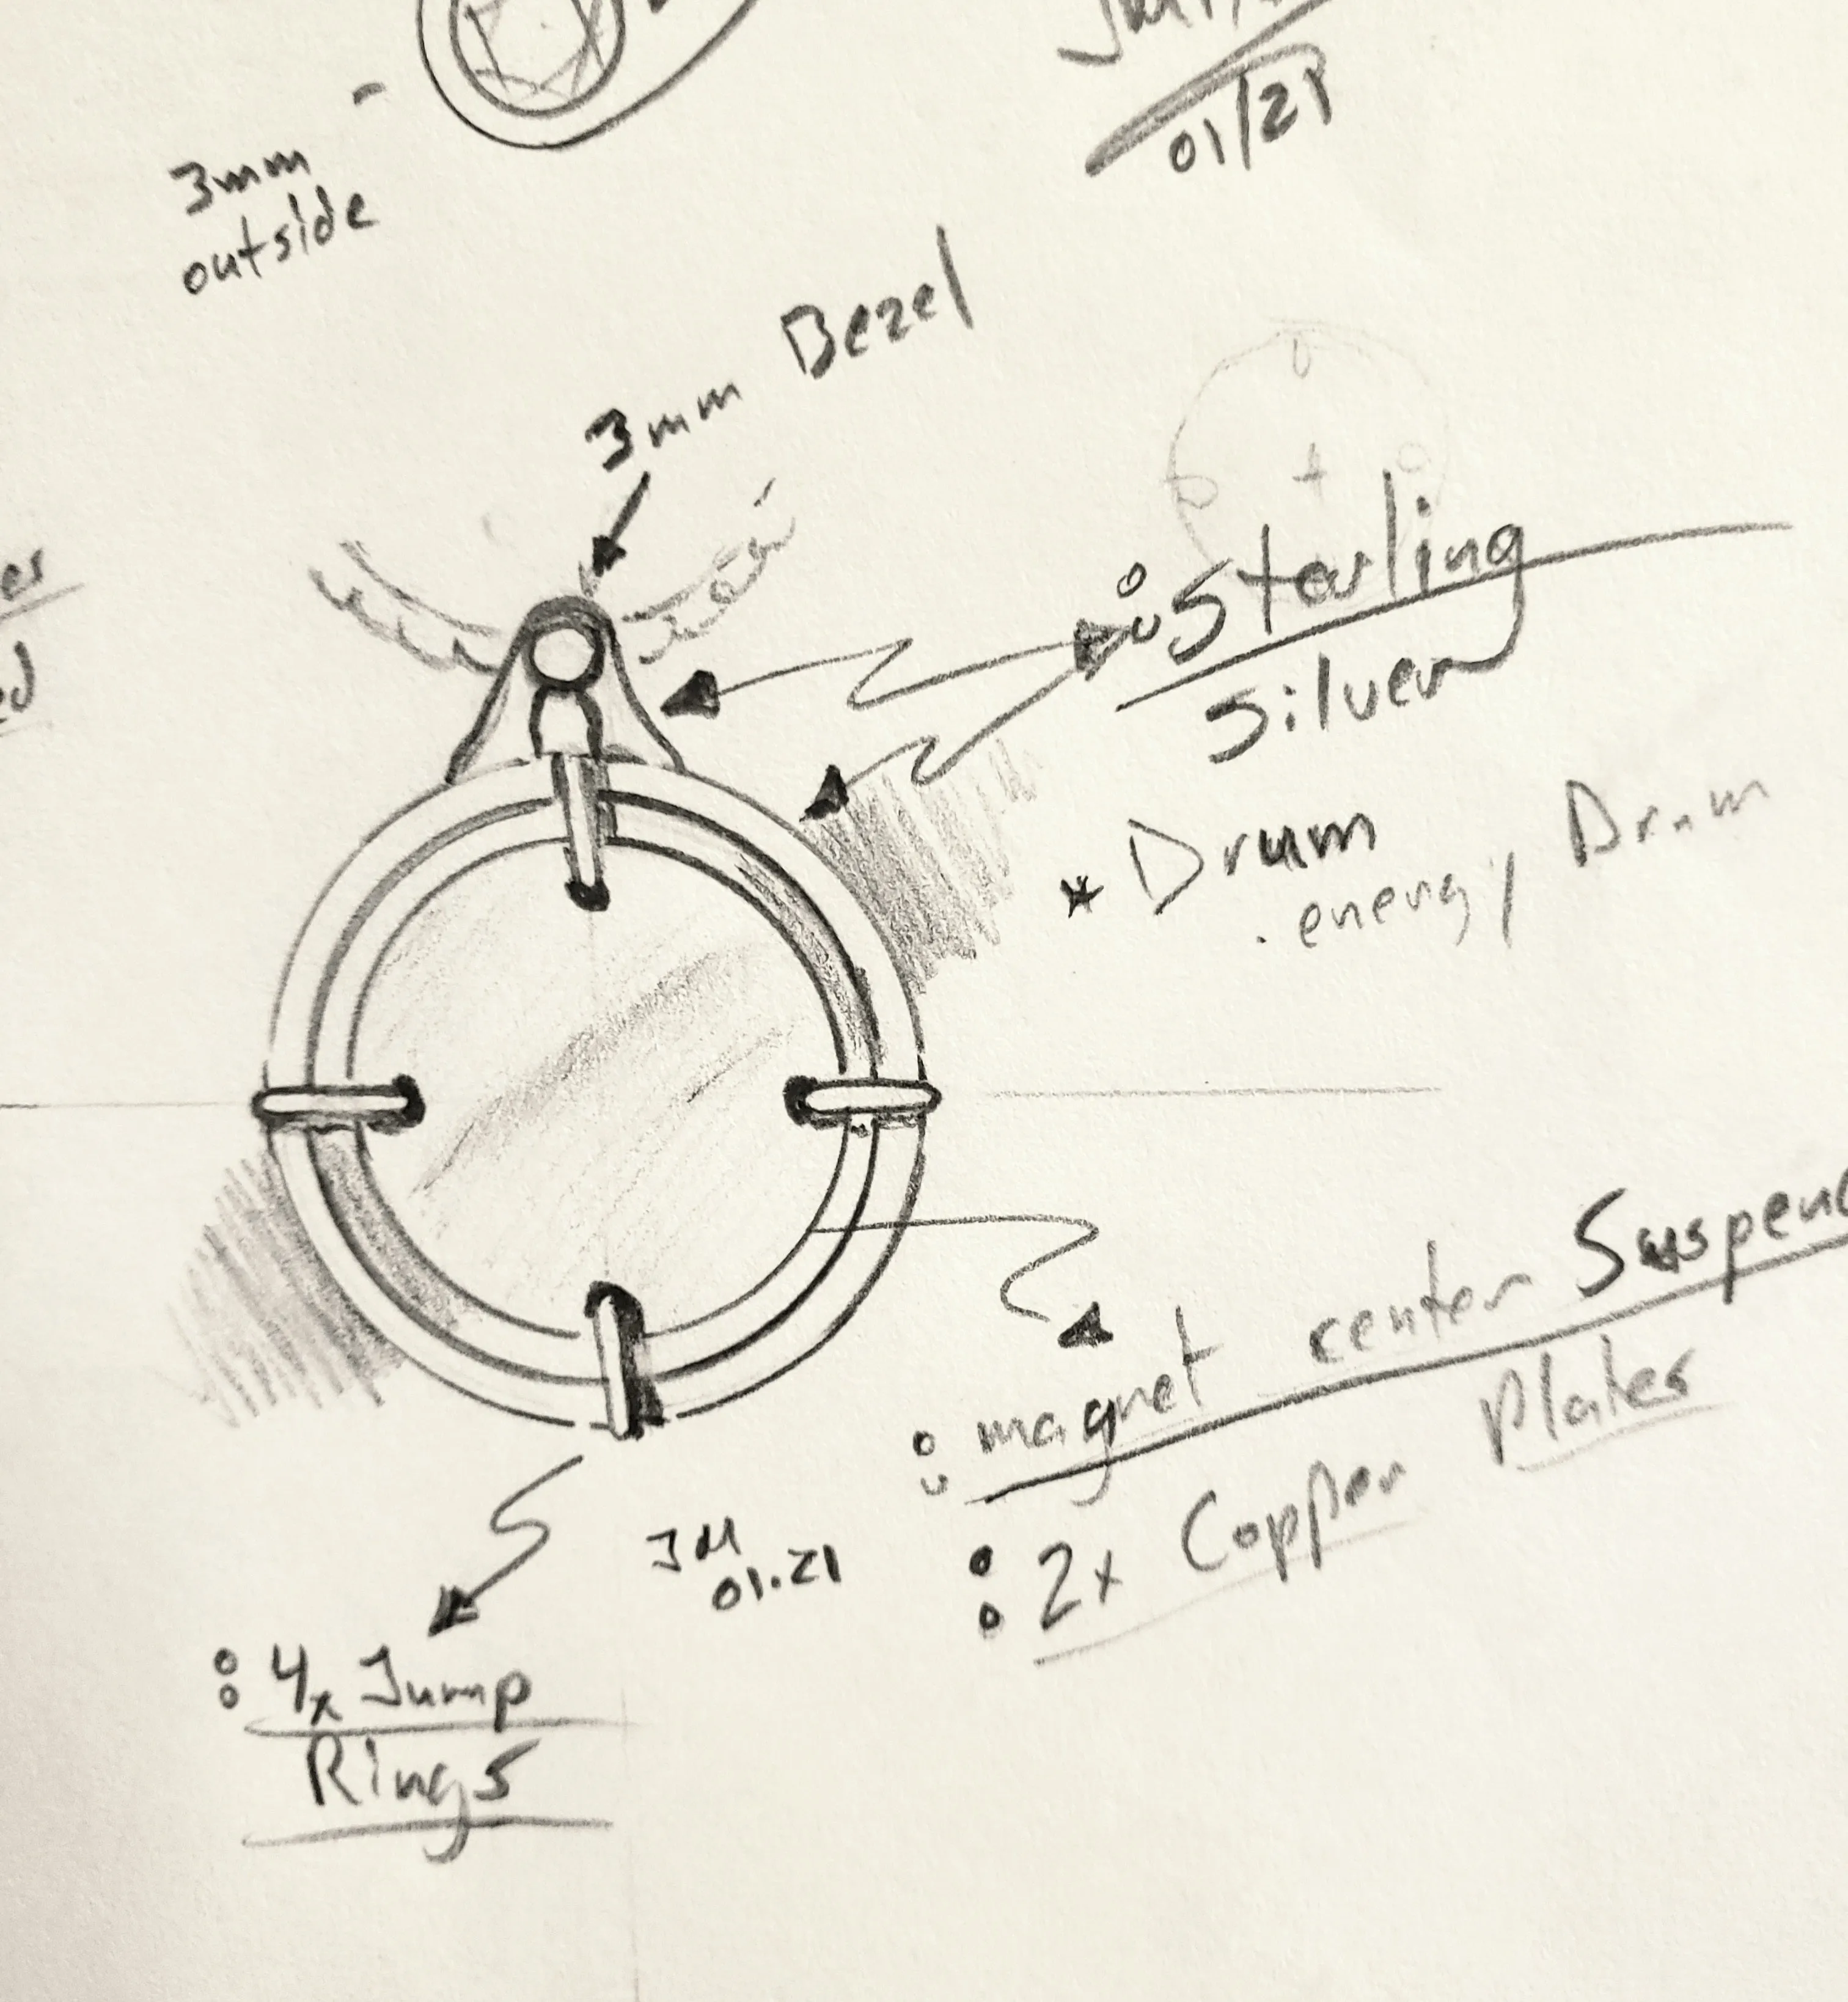 01/21
3mm
outside
3mm Bezel
Starling
Silver
* Drum
. energy Drum
: magnet center
: 2x Copper Plates
JM
01.21
: 4x Jump
Rings